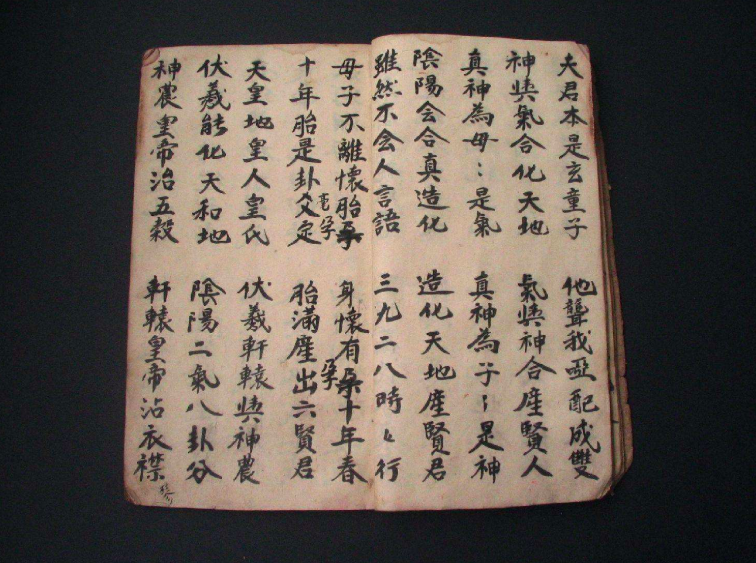 夫君本是玄童子 他聾我啞配成雙
神與氣合化天地 氣與神合產賢人
真神為母〻是氣 真神為子〻是神
陰陽会合真造化 造化天地產賢君
雖然不会人言語 三九二八時〻行
母子不離懷胎孕 身懷有孕十年春
十年胎是卦爻定 胎滿產出六賢君
天皇地皇人皇氏 伏羲軒轅與神農
伏羲能化天和地 陰陽二氣八卦分
神農皇帝治五穀 軒轅皇帝沾衣襟